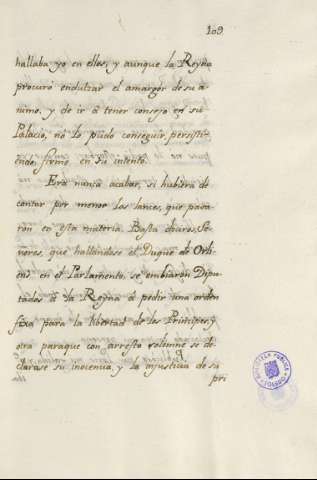 109
hallaba yo en ellos, y aunque la Reyna
procuró endulzar el amargor de su a
nimo, y de ir à tener consejo en su
Palacio, no le pudo conseguir, persisti-
endo firme en su intento.
Era nunca acabar, si hubiera de
contar por menor los lances, que pasa
ron en esta materia. Basta deciros, Se-
nores, que hallandose el Duque de Orli
ens en el Parlamento, se embiaron Dipu-
tados à la Reyna à pedir una orden
fixa para la libertad de los Principes, y
otra paraque con arresto solemne se de-
clarase su inocencia, y la injusticia de su
pri
BIBLIOTECA PUBLICA